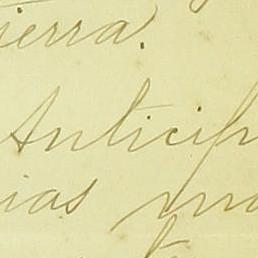 ierra.
Anticip
ias mo